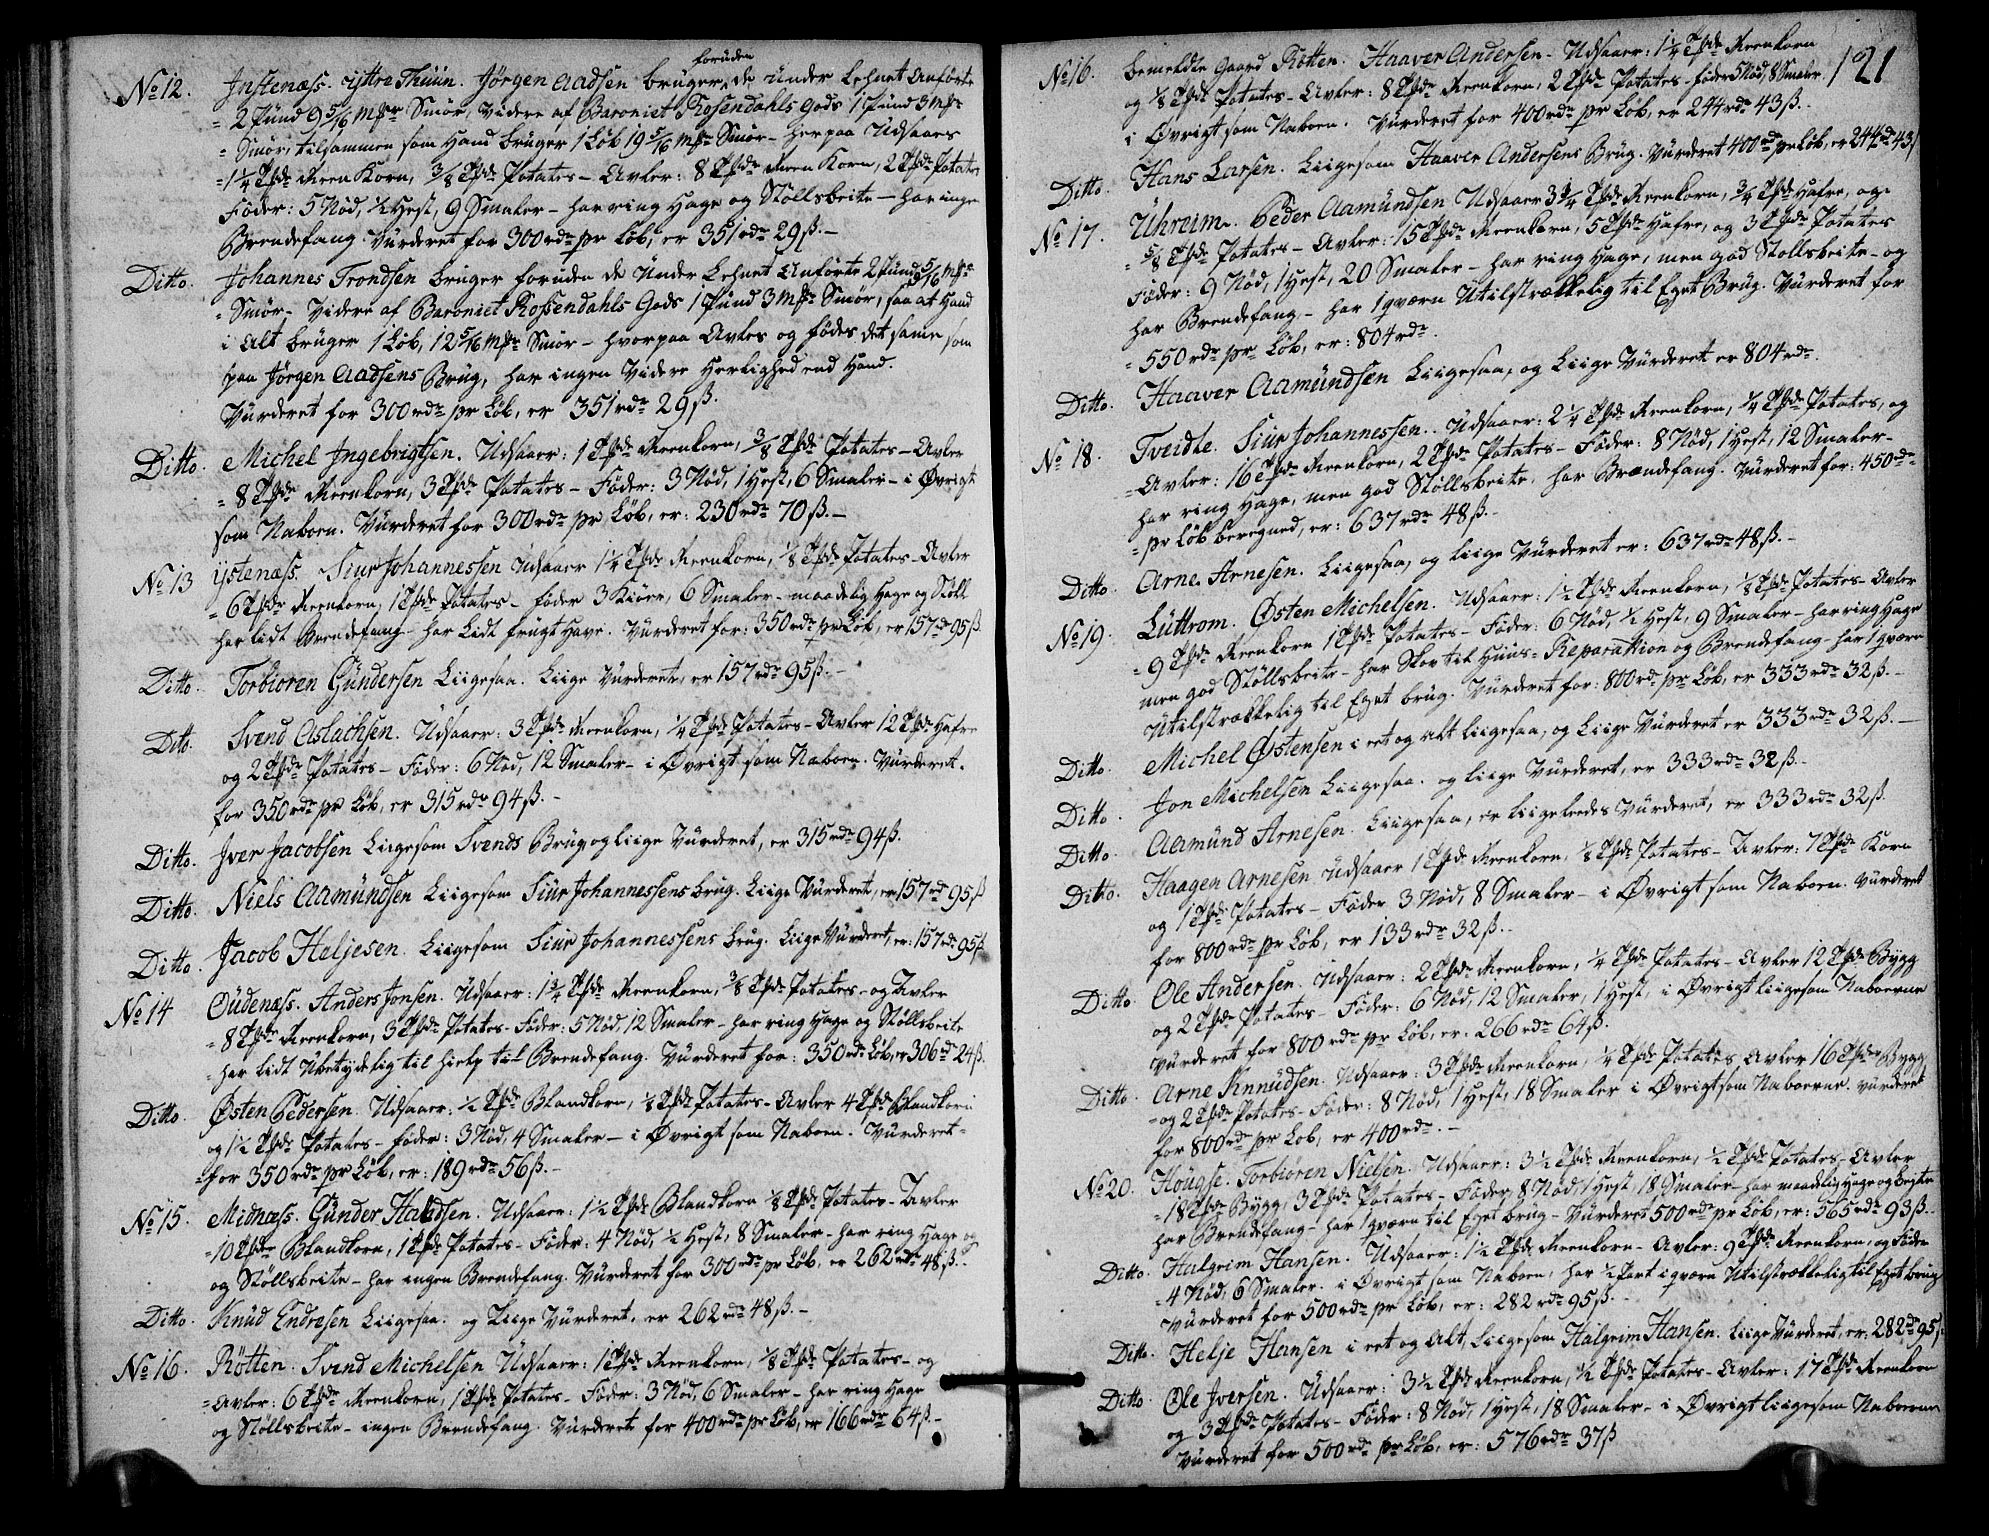 foruden
No 12. Instenæss. Yttre Thuun. Jörgen Aadsen bruger, de Under Lehnet Anförte
= 2 Pund 9 5/16 Mkr Smör, Videre af Baroniet Rosendahls Gods 1 Pund 3 Mkr
= Smör, tilsammen som Hand bruger 1 Löb 19 5/16 Mkr Smör - herpaa Udsaaes
= 1 1/4 Tde Reen Korn, 3/8 Tde Potates - Avler: 8 Tde Reen Korn, 2 Tde Potates
Föder: 5 Nöd, 1/2 Hest, 9 Smaler - har ring Hage og Stöllsbeite - har ingen
Brendefang. Vurderet for 300 rdr pr Löb, er 351 rdr 29 ß. -
Ditto. Johannes Trondsen bruger foruden de Under Lehnet Anförte 2 Pund 5/16 Mkr
= Smör - Videre af Baroniet Rossendahls Gods 1 Pund 3 Mkr Smör, saa at Hand
i Alt bruger 1 Löb, 12 5/16 Mkr Smör - hvorpaa Avles og födes det samme som
paa Jörgen Aadsens Brug, har ingen Videre Herlighed end Hand.
Vurderet for 300 rdr pr Löb, er 351 rdr 29 ß.
Ditto. Michel Ingebrigtsen. Udsaaer: 1 Tde Reenkorn, 3/8 Tde Potates - Avler
= 8 Tde Reenkorn, 3 Tde Potates - Föder: 3 Nöd, 1 Hest, 6 Smaler - i Øvrigt
som Naboen. Vurderet for 300 rdr pr Löb, er: 230 rdr 70 ß. -
No 13 Ystenæss. Siur Johannessen Udsaaer 1 1/4 Tde Reenkorn, 1/8 Tde Potates - Avler
= 6 Tde Reenkorn, 1 Tde Potates - föder 3 Kiöre, 6 Smaler - maadelig Hage og Stöll
har lidt Brendefang - har Lidt frugt Have. Vurderet for: 350 rdr pr Löb, er 157 rdr 95 ß.
Ditto. Torbioren Gundersen Liigesaa. Liige Vurderet, er 157 rdr 95 ß. -
Ditto. Svend Aslachsen. Udsaaer: 3 Tde Reenkorn, 1/4 Tde Potates - Avler 12 Tde Hafre
og 2 Tde Potates - Föder: 6 Nöd, 12 Smaler - i Øvrigt som Naboen. Vurderet.
for 350 rdr pr Löb, er 315 rdr 94 ß. -
Ditto. Iver Jacobsen Liigesom Svends Brug og liige Vurderet, er 315 rdr 94 ß.
Ditto. Niels Aamundsen Liigesom Siur Johannessens brug. Liige Vurderet, er 157 rdr 95 ß
Ditto. Jacob Heljesen. Liigesom Siur Johannessens brug. Liige Vurderet, er: 157 rdr 95 ß.
No 14 Oudenæss. Anders Jonsen. Udsaaer: 1 3/4 Tde Reenkorn, 3/8 Tde Potates - og Avler
= 8 Tde Reenkorn, 3 Tde Potates - Föder: 5 Nöd, 12 Smaler - har ring Hage og Stöllsbeite
= har lidt Ubetydelig til hielp til Brendefang. Vurderet for: 350 rdr Löb, er 306 rdr 24 ß.
Ditto. Østen Pedersen. Udsaaer: 1/2 Tde Blandkorn, 1/8 Tde Potates - Avler 4 Tde Blandkorn
og 1 1/2 Tde Potates - föder: 3 Nöd, 4 Smaler - i Øvrigt som Naboen. Vurderet =
for 350 rdr pr Löb, er: 189 rdr 56 ß. -
No 15. Midnæss. Gunder Haldsen. Udsaaer: 1 1/2 Tde Blandkorn 1/8 Tde Potates - Avler
= 10 Tde Blandkorn, 1 Tde Potates - Föder: 4 Nöd, 1/2 Hest, 8 Smaler - har ring Hage og
og Stöllsbeite - har ingen Brendefang. Vurderet for 300 rdr pr Löb, er 262 rdr 48 ß.
Ditto. Knud Endresen Liigesaa. og Liige Vurderet, er 262 rdr 48 ß. -
No 16. Rötten. Svend Michelsen Udsaaer: 1 Tde Reenkorn, 1/8 Tde Potates - og
= Avler: 6 Tde Reenkorn, 1 Tde Potates - Föder: 3 Nöd, 6 Smaler - har ring Hage
og Stöllsbeite - ingen Brendefang. Vurderet for 400 rdr pr Löb, er 166 rdr 64 ß. -
121
No 16. bemeldte Gaard Rötten. Haaver Andersen - Udsaaer: 1 1/4 Tde Reenkorn
og 1/8 Tde Potates - Avler: 8 Tde Reenkorn, 2 Tde Potates - föder 5 Nöd, 8 Smaler.
i Øvrigt som Naboen. Vurderet for 400 rdr pr Löb, er 244 rdr 43 ß. -
Ditto. Hans Larsen. Liigesom Haaver Andersens Brug. Vurderet 400 rdr pr Löb, er 244 rdr 43 ß
No 17. Uhreim. Peder Aamundsen Udsaaer 3 3/4 Tde Reenkorn, 3/4 Tde Hafre, og
= 5/8 Tde Potates - Avler: 15 Tde Reenkorn, 5 Tde Hafre, og 3 Tde Potates
Föder: 9 Nöd, 1 Hest, 20 Smaler - har ring Hage, men god Stollsbeite - og
har Brendefang - har 1 qværn Utilstrækkelig til Eget Brug. Vurderet for
= 550 rdr pr Löb, er: 804 rdr.
Ditto. Haaver Aamundsen Liigesaa, og Liige Vurderet er 804 rdr.
No 18. Tveidte. Siur Johannessen. Udsaaer: 2 1/4 Tde Reenkorn, 1/4 Tde Potates, og
= Avler: 16 Tde Reenkorn, 2 Tde Potates - Föder: 8 Nöd, 1 Hest, 12 Smaler -
har ring Hage, men god Stöllsbeite, har Brændefang. Vurderet for: 450 rdr
= pr Löb beregned, er: 637 rdr 48 ß. -
Ditto. Arne Arnesen. Liigesaa, og liige Vurderet er: 637 rdr 48 ß. -
No 19. Luttrom. Østen Michelsen. Udsaaer: 1 1/2 Tde Reenkorn, 1/8 Tde Potates - Avler
= 9 Tde Reenkorn 1 Tde Potates - Föder: 6 Nöd, 1/2 Hest, 9 Smaler - har ring Hage
men god Stöllsbeite - har Skov til Huus = Reparation og Brendefang - har 1 qværn
Utilstrækkelig til Eget brug. Vurderet for: 800 rdr pr Löb, er 333 rdr 32 ß. -
Ditto. Michel Østensen i eet og alt liigesaa, og Liige Vurderet er 333 rdr 32 ß. -
Ditto. Jon Michelsen Liigesaa. og liige Vurderet, er 333 rdr 32 ß. -
Ditto. Aamund Arnesen. Liigesaa, er liigeledes Vurderet, er 333 rdr 32 ß.
Ditto. Haagen Arnesen Udsaaer 1 Tde Reenkorn, 1/8 Tde Potates - Avler: 7 Tde Korn
og 1 Tde Potates - Föder 3 Nöd, 8 Smaler - i Øvrigt som Naboen. Vurderet
for 800 rdr pr Löb, er 133 rdr 32 ß. -
Ditto. Ole Andersen. Udsaaer: 2 Tde Reenkorn, 1/4 Tde Potates - Avler 12 Tde Bygg
og 2 Tde Potates - Föder: 6 Nöd, 12 Smaler, 1 Hest, i Øvrigt liigesom Naboerne
Vurderet for 800 rdr pr Löb, er: 266 rdr 64 ß.
Ditto. Arne Knnudsen. Udsaaer: 3 Tde Reenkorn, 1/4 Tde Potates, Avler 16 Tde Bygg
= og 2 Tde Potates - Föder: 8 Nöd, 1 Hest, 18 Smaler i Øvrigt som Naboerne. vurderet
for 800 rdr pr Löb, er 400 rdr. -
No 20. Hougse. Torbiören Nielsen. Udsaaer: 3 1/2 Tde Reenkorn, 1/2 Tde Potates - Avler
= 18 Tde Bygg, 3 Tde Potates - Föder, 8 Nöd, 1 Hest, 18 Smaler - har maadelig Hage og beite
har Brendefang - har 1 qværn til Eget brug - Vurderet 500 rdr pr Löb, er: 565 rdr 93 ß.
Ditto. Halgeim Hansen. Udsaaer: 1 1/2 Tde Reenkorn - Avler: 9 Tde Reenkorn, og Föder
= 4 Nöd, 6 Smaler. i Øvrigt som Naboen, har 1/2 Part i qværn Utilstrækkelig til Eget brug
Vurderet for 500 rdr pr Löb, er: 282 rdr 95 ß. -
Ditto. Helje Hansen i eet og Alt, Liigesom Halgeim Hansen. Liige Vurderet, er, 282 rdr 95 ß.
Ditto. Ole Iversen. Udsaaer: 3 1/2 Tde Reenkorn, 1/2 Tde Potates - Avler: 17 Tde Reenkorn
og 3 Tde Potates - Föder: 8 Nöd, 1 Hest, 18 Smaler - i Øvrigt liigesom Naboerne
Vurderet for 500 rdr pr Löb, er: 576 rdr 37 ß